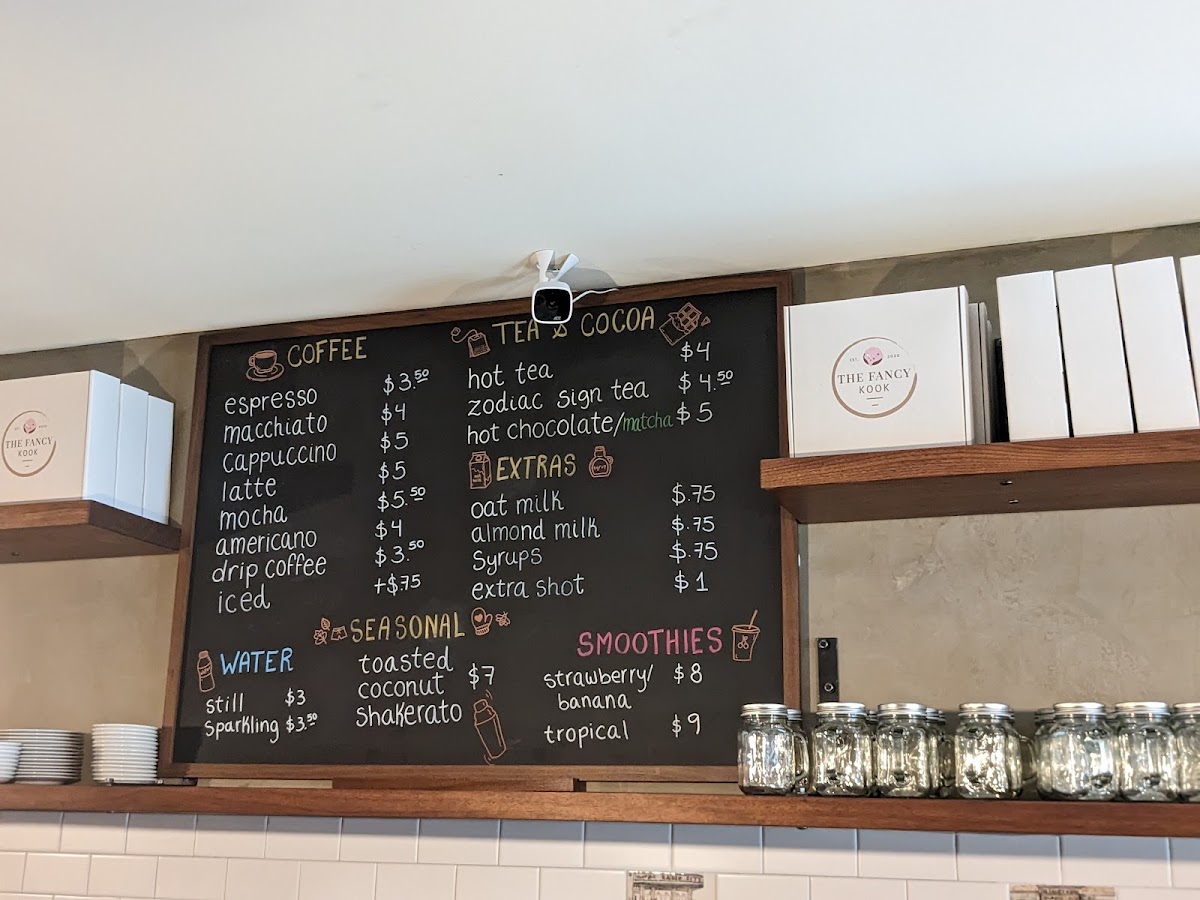 COFFEE
espresso $3.50
macchiato $4
cappuccino $5
latte $5
mocha $5.50
americano $4
drip coffee $3.50
iced +$.75
TEA & COCOA
hot tea $4
zodiac sign tea $4.50
hot chocolate/matcha $5
EXTRAS
oat milk $.75
almond milk $.75
Syrups $.75
extra shot $1
WATER
still $3
sparkling $3.50
SEASONAL
toasted
coconut $7
shakerato
SMOOTHIES
strawberry/ $8
banana
tropical $9
THE FANCY
KOOK
EST. 2020
THE FANCY
KOOK